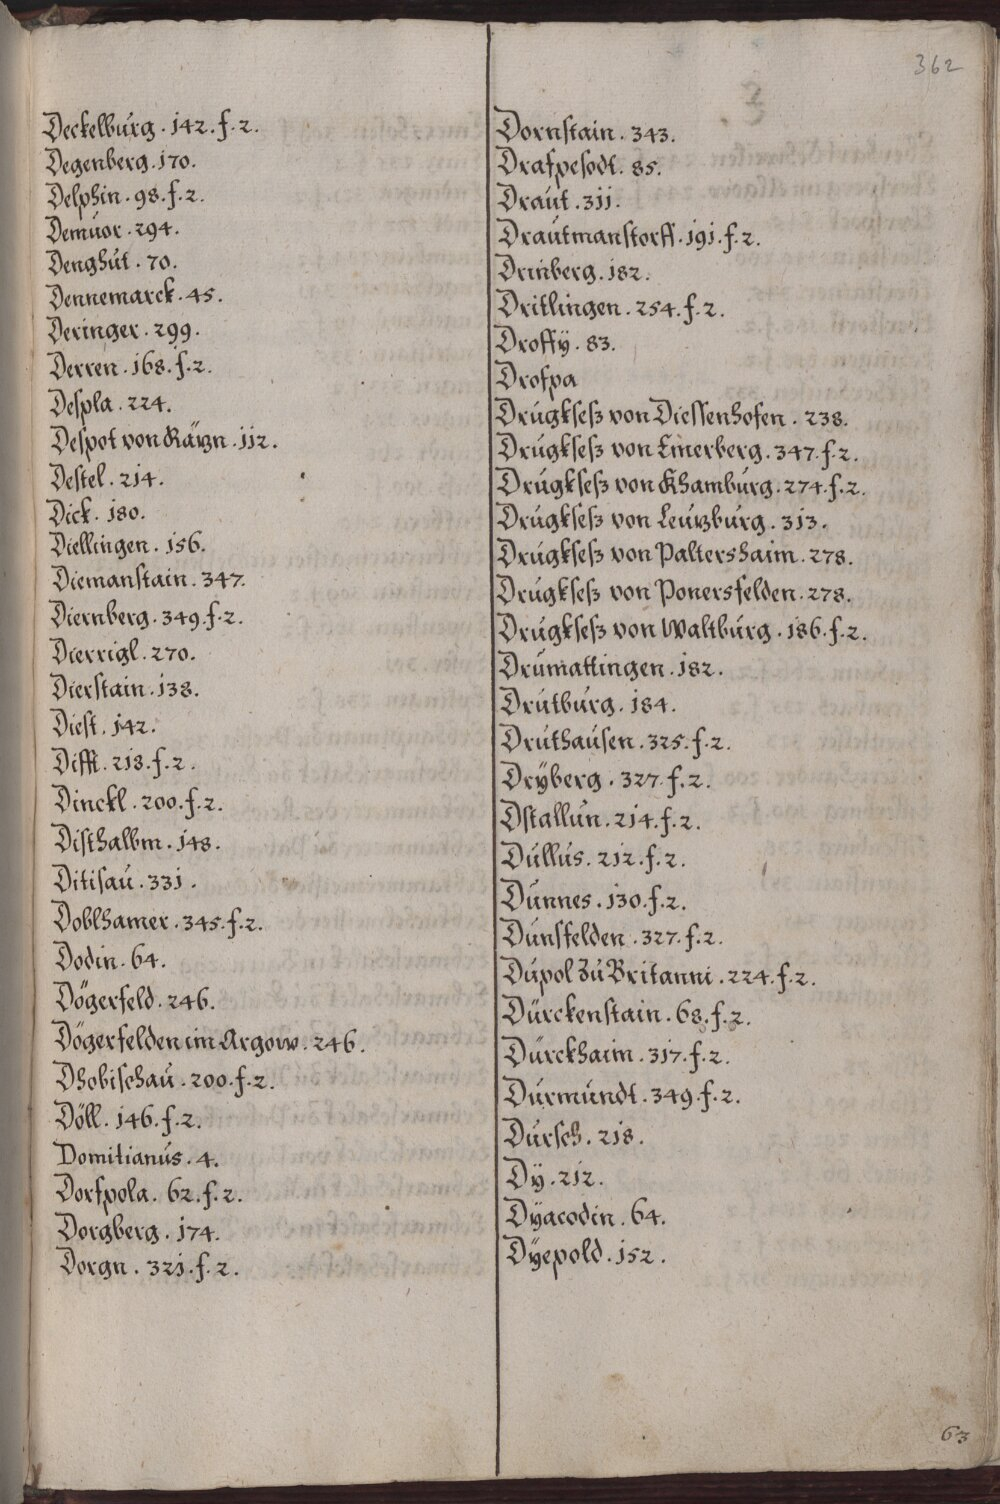 362
Deckelburg. 142. f. 2.
Degenberg. 170.
Delphin. 98. f. 2.
Demuor. 294.
Denghut. 70.
Dennemarck. 45.
Deringer. 299.
Derren. 168. f. 2.
Despla. 224.
Despot von Rätzn. 112.
Destel. 214.
Dick. 180.
Diellingen. 156.
Diemanstain. 347.
Diernberg. 349. f. 2.
Dierrigl. 270.
Dierstain. 138.
Diest. 142.
Difft. 218. f. 2.
Dinckl. 200. f. 2.
Disthalbm. 148.
Ditisau. 331.
Doblhamer. 345. f. 2.
Dodin. 64.
Dögerfeld. 246.
Dögerfelden im Argow. 246.
Dhobischau. 200. f. 2.
Döll. 146. f. 2.
Domitianus. 4.
Dorfpola. 62. f. 2.
Dorgberg. 174.
Dorgn. 321. f. 2.
Dornstain. 343.
Drafpesodt. 85.
Draut. 311.
Drautmanstorff. 191. f. 2.
Drinberg. 182.
Dritlingen. 254. f. 2.
Droffÿ. 83.
Drofpa
Drugksesz von Diessenhofen. 238.
Drugksesz von Emerberg. 347. f. 2.
Drugksesz von Khamburg. 274. f. 2.
Drugksesz von Leutzburg. 313.
Drugksesz von Paltershaim. 278.
Drugksesz von Ponersfelden. 278.
Drugksesz von Waltburg. 186. f. 2.
Drumattingen. 182.
Drutburg. 184.
Druthausen. 325. f. 2.
Drÿberg. 327. f. 2.
Dstallun. 214. f. 2.
Dullus. 212. f. 2.
Dunnes. 130. f. 2.
Dunsfelden. 327. f. 2.
Dupol Zu Britanni. 224. f. 2.
Dürckenstain. 68. f. 2.
Durckhaim. 317. f. 2.
Durmundt. 349. f. 2.
Dursch. 218.
Dÿ. 212.
Dÿacodin. 64.
Dÿepold. 152.
63